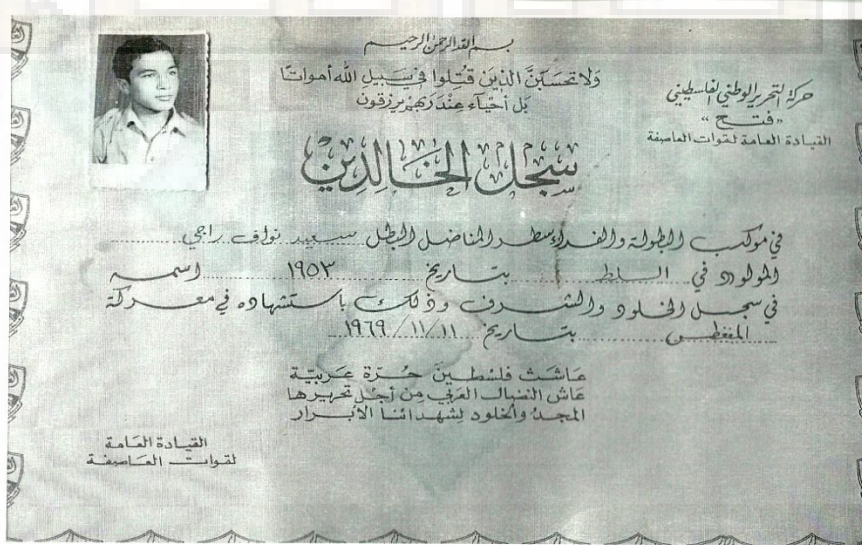 بسم الله الرحمن الرحيم
وَلا تَحسَبَنَّ الذينَ قُتِلوا في سَبيلِ الله أمواتًا
بل أحيَاء عِنْدَ رَبهم يرزقون
حركة التحرير الوطني الفلسطيني
"فتح"
القيادة العامة لقوات العاصفة
سجل الخالدين
في موكب البطولة والفداء سطر المناضل البطل سعيد نواف راجي
المولود في السلط بتاريخ ١٩٥٣ اسمه
في سجل الخلود والشرف وذلك باستشهاده في معركة
المغطس بتاريخ ١١/١١/١٩٦٩
عَاشَت فلسْطين حُرّة عَربيّة
عَاش النضال العَربي مِن أجْل تحريرها
المجدُ والخلود لشهدائنا الأبرار
القيادة العَامة
لقوات العَاصفة